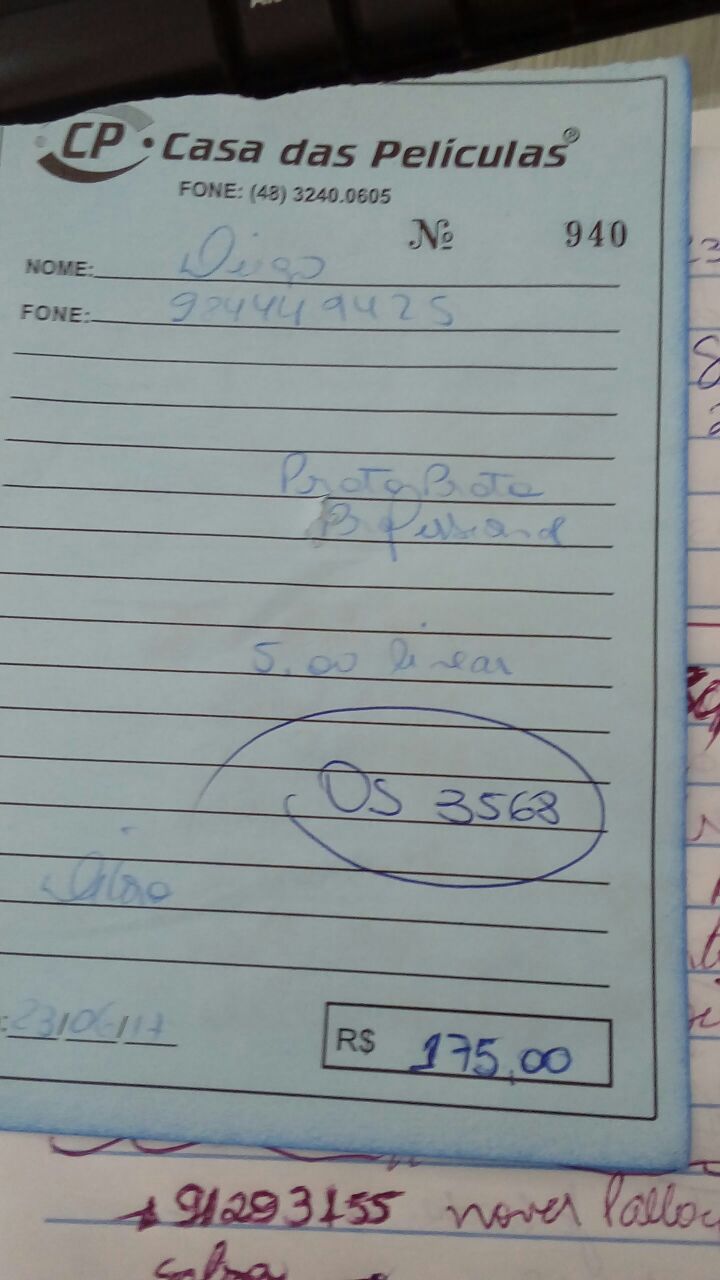 CP • Casa das Películas®
FONE: (48) 3240.0605
Nº 940
NOME: Diego
FONE: 984449425
Prata Brota
Profissional
5,00 linear
OS 3568
23/06/17
R$ 175,00
91293155 nover